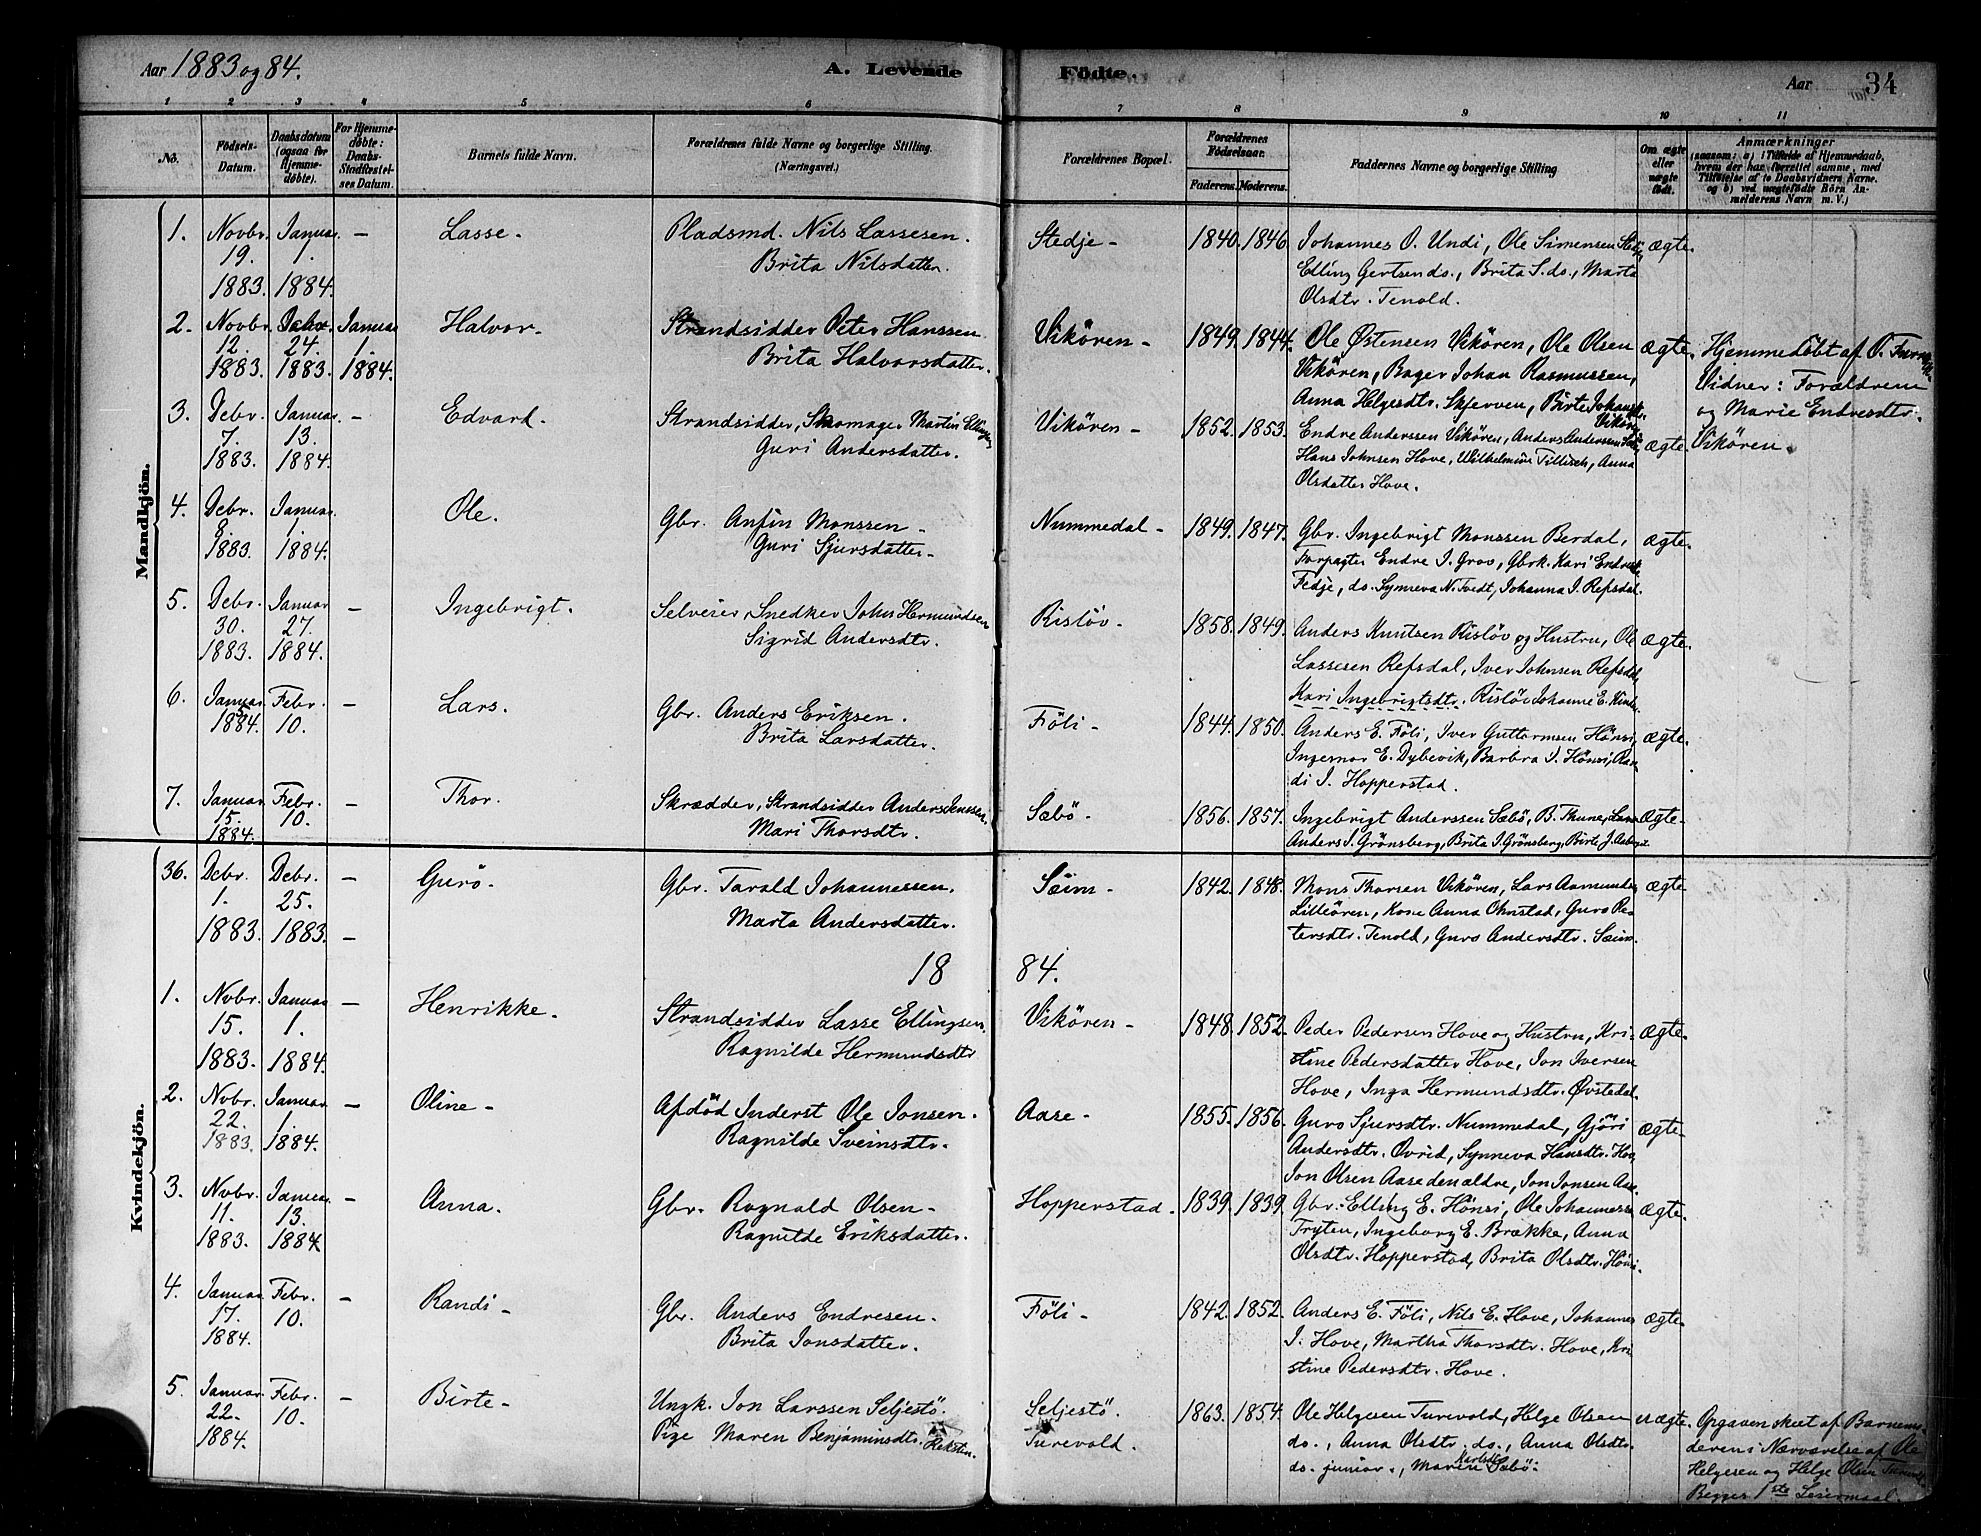 Aar 1883 og 84.
A. Levende Födte.
Aar 34
1 2 3 4 5 6 7 8 9 10 11
No.
Födsels-Datum.
Daabsdatum (ogsaa for Hjemme-döbte).
For Hjemme-döbte: Daabs-Stadfæstel-ses Datum.
Barnets fulde Navn.
Forældrenes fulde Navne og borgerlige Stilling.
(Næringsvei.)
Forældrenes Bopæl.
Forældrenes Födselsaar.
Faderens. Moderens.
Faddernes Navne og borgerlige Stilling
Om ægte eller uægte födt.
Anmærkninger
(saasom: a) i Tilfælde af Hjemmedaab,
hvem der har forrettet samme, med
Tilföielse af to Daabsvidners Navne.
og b) ved uægtefödte Börn An-
melderens Navn m. V.)
Mandkjön.
1. Novbr. 19. 1883. Januar 1. 1884. – Lasse –
Pladsmd. Nils Lassesen.
Brita Nilsdatter.
Stedje – 1840. 1846
Johannes O. Undi, Ole Simensen Stedje
Elling Gertsen do., Brita S. do., Marta
Olsdtr. Tenold.
ægte.
2. Novbr. 12. 1883. Debr. 24. 1883. Januar 1. 1884. Halvor –
Strandsidder Peter Hanssen
Brita Halvorsdatter.
Vikören – 1849. 1844.
Ole Østensen Vikören, Ole Olsen
Vikören, Bager Johan Rasmussen,
Anna Helgesdtr. Skjerven, Birte Johansdtr.
Vikören
ægte.
Hjemmedöbt af O.
Vidner: Forældrene
og Marie Endresdtr.
Vikören.
3. Debr. 7. 1883. Januar 13. 1884. – Edvard.
Strandsidder, Skomager Martin Ellingsen
Guri Andersdatter.
Vikören – 1852. 1853.
Endre Anderssen Vikören, Anders Anderssen
Hans Johnsen Hove, Wilhelmine Tillisch, Anna
Olsdatter Hove.
ægte.
4. Debr. 9. 1883. Januar 1. 1884. Ole.
Gbr. Anfin Monssen –
Guri Sjursdatter –
Nummedal – 1849. 1847.
Gbr. Ingebrigt Monssen Berdal,
Forpagter Endre I. Grov, Gbrk. Kari Endresdtr.
Fedje, do. Synneva N. Tvedt, Johanna I. Refsdal.
ægte.
5. Debr. 30. 1883. Januar 27. 1884. – Ingebrigt.
Selveier, Snedker John Hermundsen
Sigrid Andersdtr.
Rislöv – 1858. 1849.
Anders Knutsen Rislöv og Hustru, Ole
Lassesen Refsdal, Iver Johnsen Refsdal,
Kari Ingebrigtsdtr. Rislöv, Johanne E.
ægte.
6. Januar 5. 1884. Febr. 10. – Lars.
Gbr. Anders Eriksen.
Brita Larsdatter.
Föli – 1844. 1850.
Anders E. Föli, Iver Guttormsen Hönsi,
Ingernor E. Dybevik, Barbra I. Hönsi, Ran-
di I. Hopperstad.
ægte.
7. Januar 15. 1884. Febr. 10. – Thor.
Skrædder, Strandsidder Anders Jenssen.
Mari Thorsdtr.
Sæbö – 1856. 1857.
Ingebrigt Anderssen Sæbö, B. Thune,
Anders I. Grönsberg, Brita I. Grönsberg, Birte J.
ægte.
Kvindekjön.
36. Debr. 1. 1883. Debr. 25. 1883. – Gurö.
Gbr. Tarald Johannessen.
Marta Andersdatter.
Seim – 1842. 1848.
Mons Thorsen Vikören, Lars Aamunds
Lilleören, Kone Anna Ohnstad, Guro Pe-
tersdtr. Tenold, Guro Andersdtr. Seim.
ægte.
18 84.
1. Novbr. 15. 1883. Januar 1. 1884. – Henrikke.
Strandsidder Lasse Ellingsen.
Ragnilde Hermundsdtr
Vikören – 1848. 1852.
Peder Pedersen Hove og Hustru, Kri-
stine Pedersdatter Hove, Jon Iversen
Hove, Inga Hermundsdtr. Øvstedal.
ægte.
2. Novbr. 22. 1883. Januar 1. 1884. – Oline –
Afdöd Inderst Ole Jonsen.
Ragnilde Sveinsdtr.
Aase – 1855. 1856.
Guro Sjursdtr. Nummedal, Gjöri
Andersdtr. Ovrid, Synneva Hansdtr.
Jon Olsen Aase den ældre, Jon Jonsen Aase.
ægte.
3. Novbr. 11. 1883. Januar 13. 1884. – Anna.
Gbr. Ragnald Olsen –
Ragnilde Eriksdatter.
Hopperstad. 1839. 1839.
Gbr. Elling E. Hönsi, Ole Johannessen
Tryten, Ingeborg E. Brække, Anna
Olsdtr. Hopperstad, Brita Olsdtr. Hönsi.
ægte.
4. Januar 17. 1884. Febr. 10. – Randi –
Gbr. Anders Endresen.
Brita Jonsdatter.
Föli – 1842. 1852.
Anders E. Föli, Nils E. Hove, Johannes
I. Hove, Martha Thorsdtr. Hove, Kri-
stine Pedersdtr. Hove.
ægte.
5. Januar 22. 1884. Febr. 10. – Birte –
Ungk. Jon Larssen Seljestö.
Pige Maren Benjaminsdtr. Reksten.
Seljestö.
Turevold.
1863. 1854.
Ole Helgesen Turevold, Helge Olsen
do., Anna Olsdtr. do., Anna Olsdtr.
do. junior., Maren Karlsdtr Sæbö.
uægte.
Opgaven skeet af Barnemo-
deren i Nærværelse af Ole
Helgesen og Helge Olsen Turevold
Begges 1ste Leiermaal.